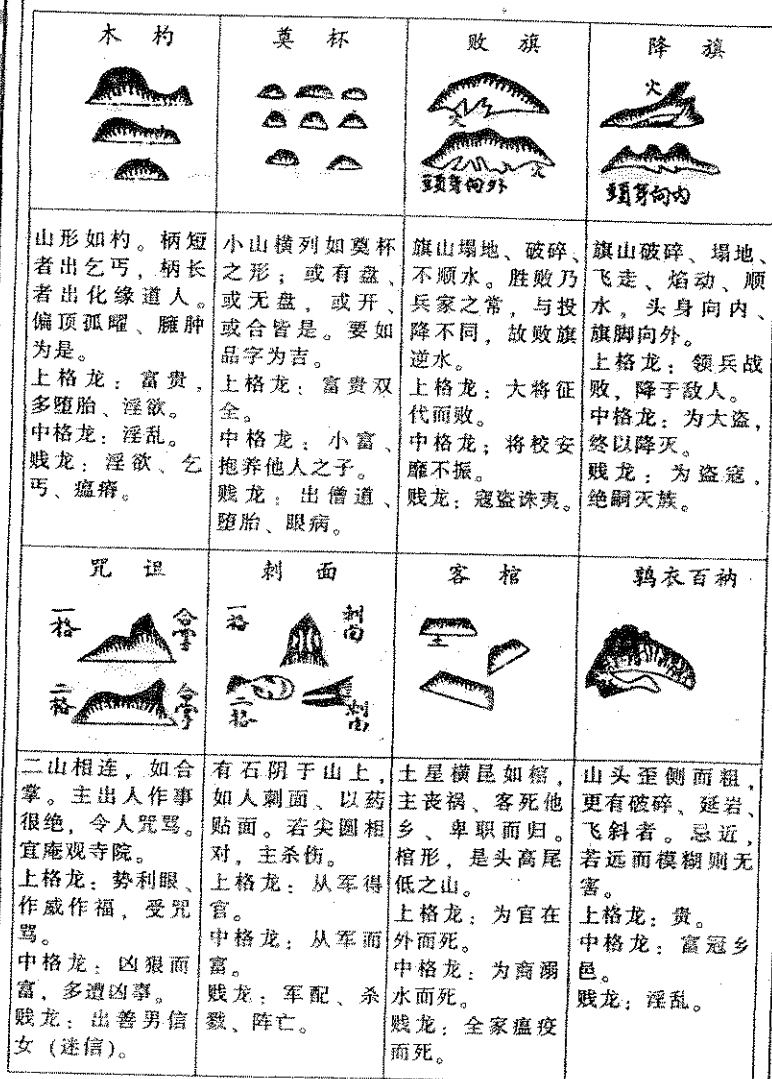 木杓
山形如杓。柄短
者出乞丐，柄长
者出化缘道人。
偏顶孤曜、臃肿
为是。
上格龙：富贵，
多堕胎、淫欲。
中格龙：淫乱。
贱龙：淫欲、乞
丐、瘟𤺥。
奠杯
小山横列如奠杯
之形；或有盘、
或无盘，或开、
或合皆是。要如
品字为吉。
上格龙：富贵双
全。
中格龙：小富、
抱养他人之子。
贱龙：出僧道、
堕胎、眼病。
败旗
火
火
頭身向外
旗山塌地、破碎、
不顺水。胜败乃
兵家之常，与投
降不同，故败旗
逆水。
上格龙：大将征
代而败。
中格龙；将校安
靡不振。
贱龙：寇盗诛夷。
降旗
火
頭身向内
旗山破碎、塌地、
飞走、焰动、顺
水，头身向内、
旗脚向外。
上格龙：领兵战
败，降于敌人。
中格龙：为大盗，
终以降灭。
贱龙：为盗寇，
绝嗣灭族。
咒诅
一格
合掌
二格
合掌
二山相连，如合
掌。主出人作事
很绝，令人咒骂。
宜庵观寺院。
上格龙：势利眼、
作威作福，受咒
骂。
中格龙：凶狠而
富，多遭凶事。
贱龙：出善男信
女（迷信）。
刺面
一格
刺面
二格
刺面
有石阴于山上，
如人刺面、以药
贴面。若尖圆相
对，主杀伤。
上格龙：从军得
官。
中格龙：从军而
富。
贱龙：军配、杀
戮、阵亡。
客棺
土
土星横昆如棺，
主丧祸、客死他
乡、卑职而归。
棺形，是头高尾
低之山。
上格龙：为官在
外而死。
中格龙：为商溺
水而死。
贱龙：全家瘟疫
而死。
鹑衣百衲
山头歪侧而粗，
更有破碎、延岩、
飞斜者。忌近，
若远而模糊则无
害。
上格龙：贵。
中格龙：富冠乡
邑。
贱龙：淫乱。